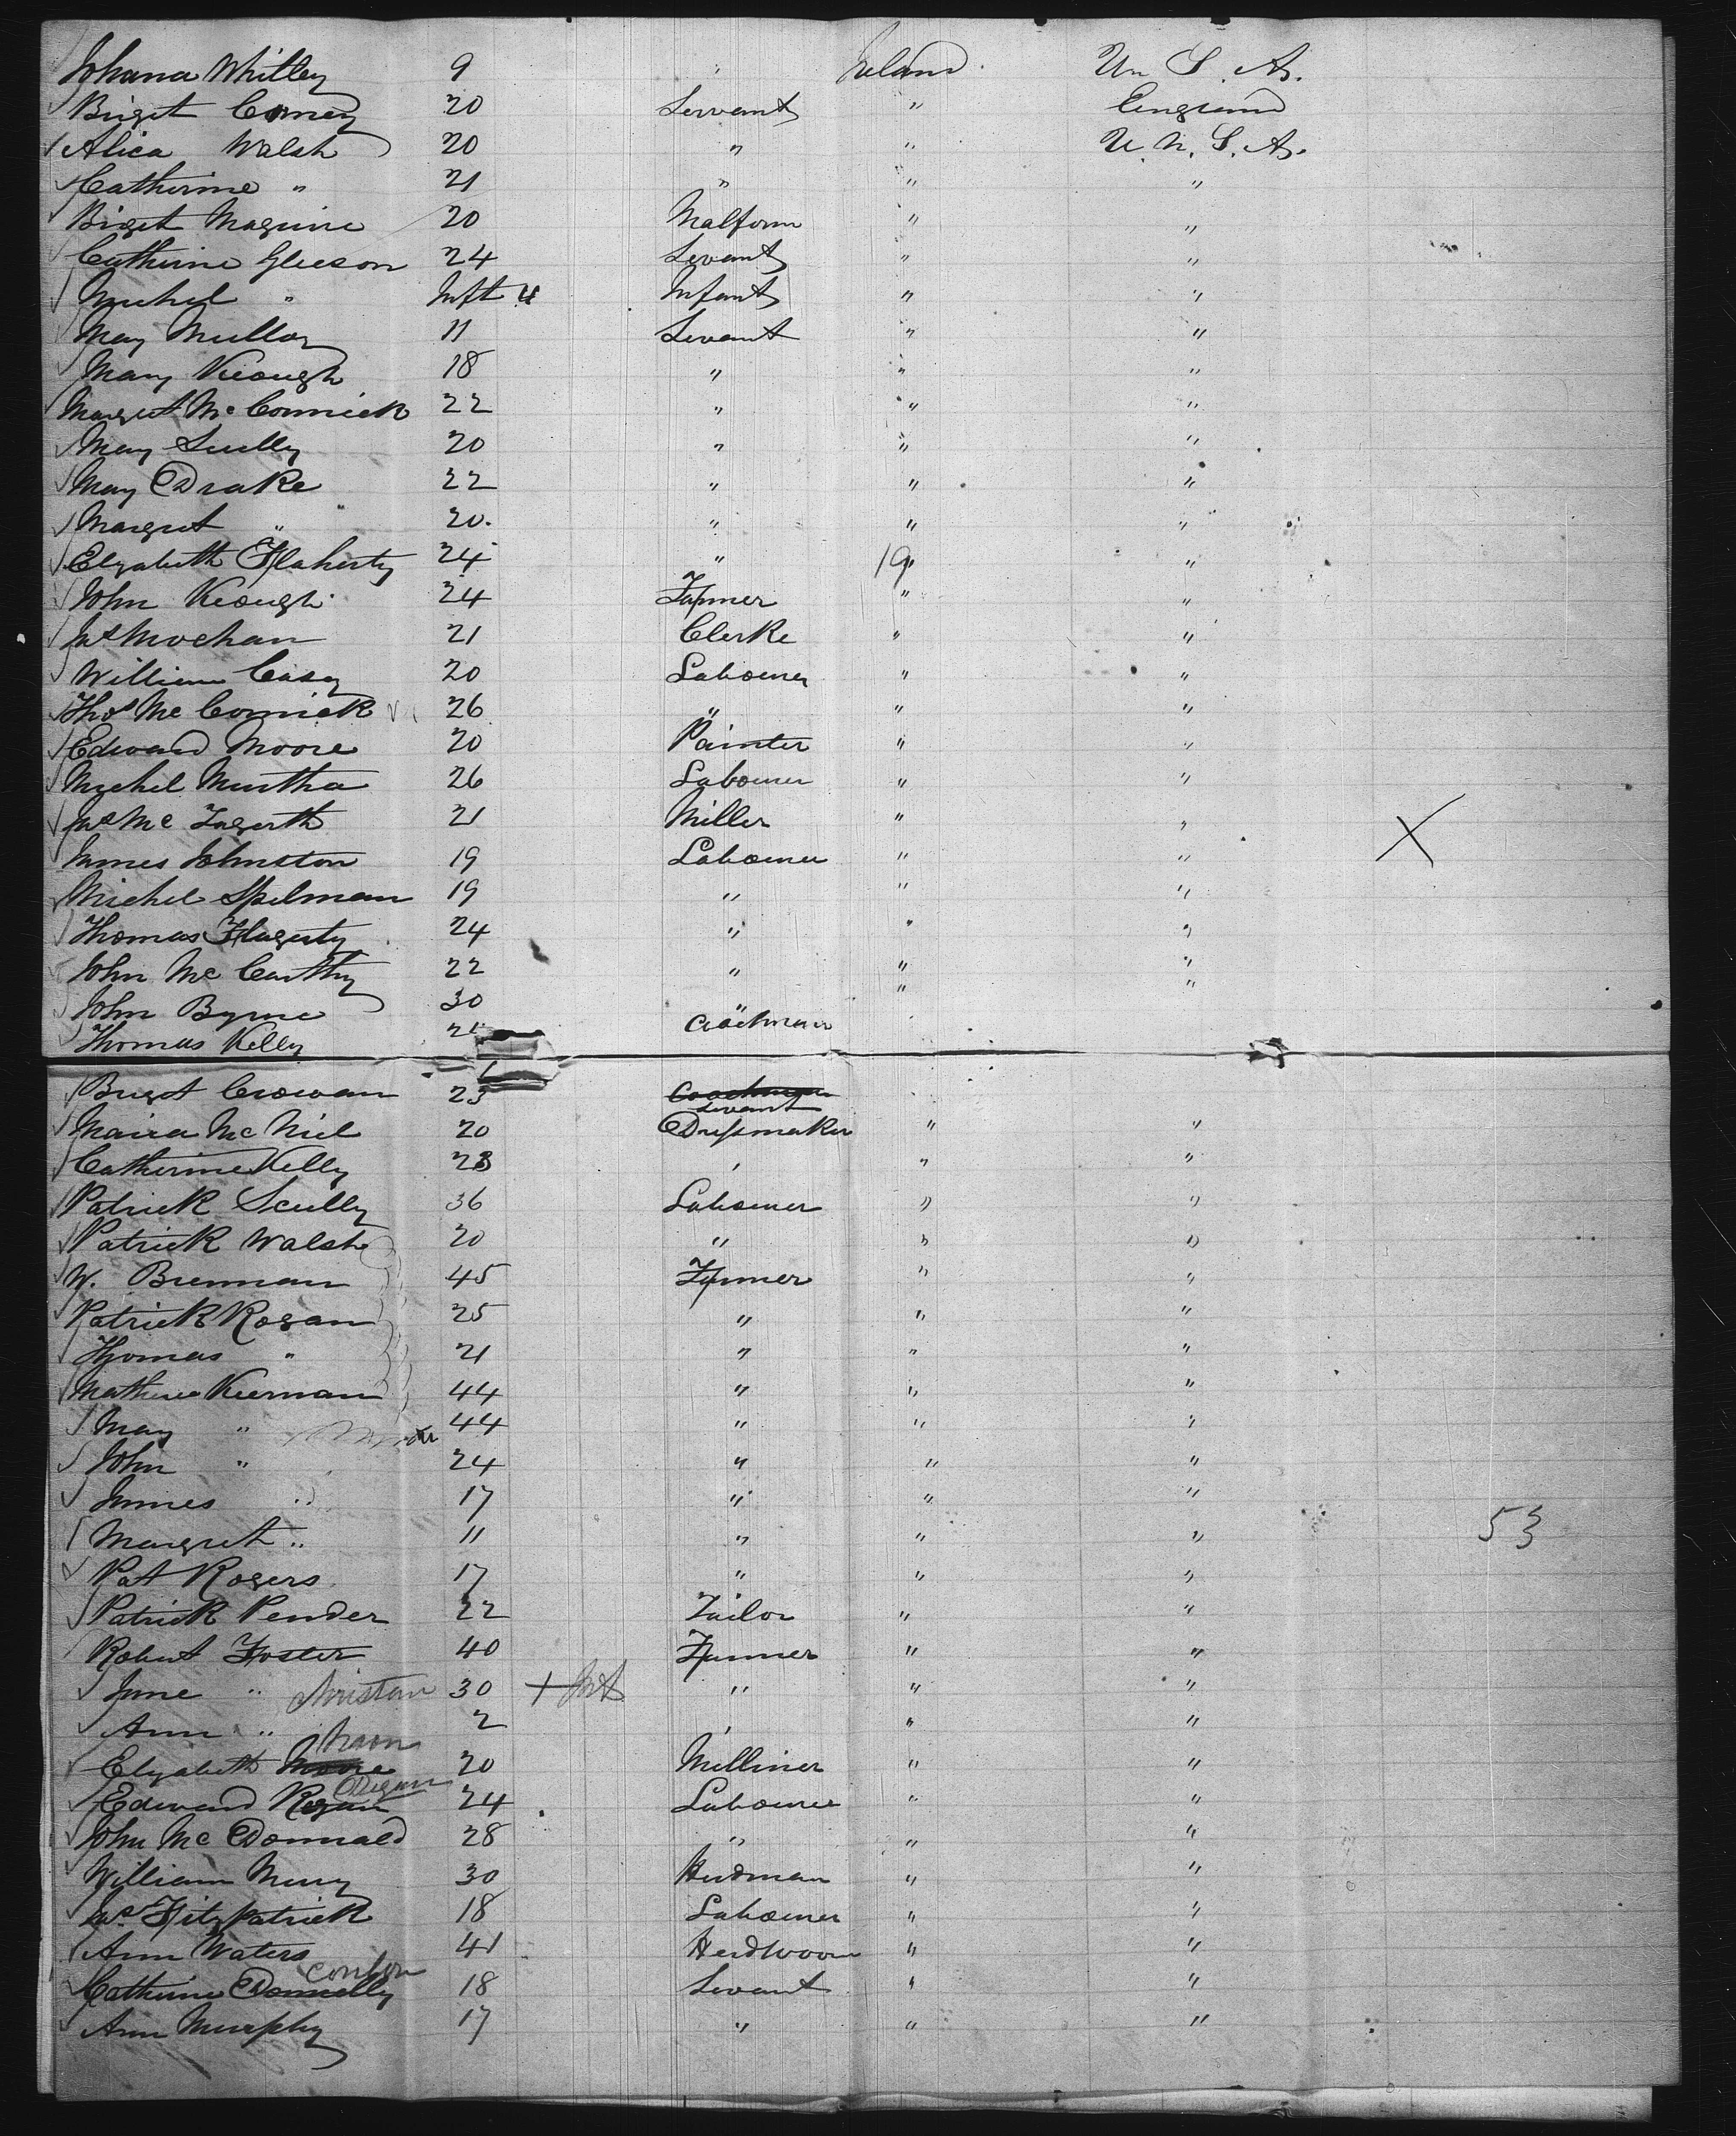 Johana Whitley 9 " Ireland Un S. A.
Briget Comey 20 Servant " England
Alica Walsh 20 " " U. N. S. A.
Catherine " 21 " " "
Briget Maguire 20 " "
Catherine Gleeson 24 Sevant " "
Michel " Inft Infant " "
May Mulloy 11 Sevant " "
Mary Keough 18 " " "
Margret Mc Cormick 22 " " "
May Scully 20 " " "
May Drake 22 " " "
Margret " 20. " " "
Elyabeth Flaherty 24 " 19 "
John Keough 24 Farmer " "
Jas Mochan 21 Clerke " "
William Casey 20 Labourer " "
Thos Mc Cormick 26 " " "
Edward Moore 20 Painter " "
Mychel Murtha 26 Labourer " "
Jas Mc 21 Miller " " X
James Johnston 19 Labourer " "
Michel Spelman 19 " " "
Thomas Flagerty 24 " " "
John Mc Carthy 22 " " "
John Byrne 30 " " "
Thomas Kelly Coachman
Briget Crowan 23 Coachman
Servant
Maria Mc Niel 20 Dressmaker " "
Catherine Kelly 23 " " "
Patrick Scully 36 Labourer " "
Patrick Walsh 20 " " "
W. Brennan 45 Farmer " "
Patrick Rogan 25 " " "
Thomas " 21 " " "
Mathew Kiernan 44 " " "
May " 44 " " "
John " 24 " " "
James " 17 " " "
Margret " 11 " " " 53
Pat Rogers 17 " " "
Patrick Pender 22 Tailor " "
Robert Foster 40 Farmer " "
Jane " 30 + " " "
Ann " 2 " " "
Elyabeth Moore 20 Milliner " "
Edward Regan 24 Labourer " "
John Mc Donnald 28 " " "
William 30 Herdman " "
Jas Fitzpatrick 18 Labourer " "
Ann Waters 41 " "
Conlon
Catherine Donnelly 18 Sevant " "
Ann Murphy 17 " " "